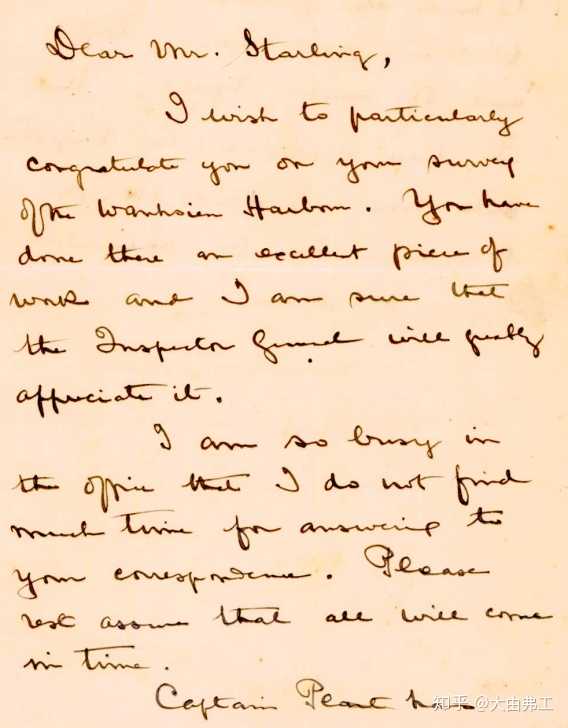 Dear Mr. Starling,
I wish to particularly
congratulate you on your survey
of the Wanhsien Harbour. You have
done there an excellent piece of
work and I am sure that
the Inspector General will greatly
appreciate it.
I am so busy in
the office that I do not find
much time for answering to
your correspondence. Please
rest assure that all will come
in time.
Captain
知乎 @大由弗工